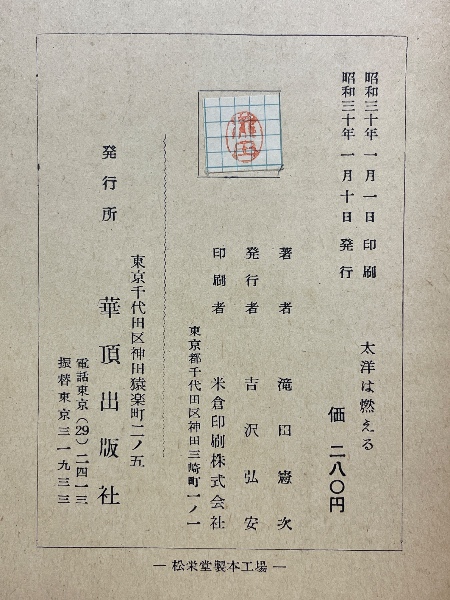 昭和三十年一月一日 印刷
昭和三十年一月十日 発行
太洋は燃える
価 二八〇円
著者 滝田憲次
発行者 吉沢弘安
印刷者 米倉印刷株式会社
東京都千代田区神田三崎町一ノ一
滝田
発行所
東京千代田区神田猿楽町二ノ五
華頂出版社
電話東京(29)二四一三
振替東京三一九三三
―松栄堂製本工場―